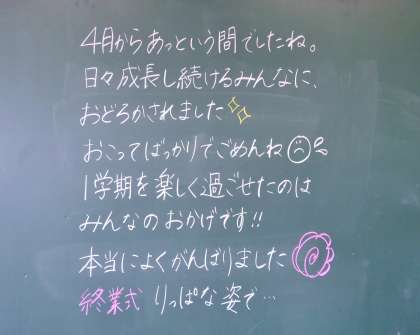 4月からあっという間でしたね。
日々成長し続けるみんなに、
おどろかされました
おこってばっかりでごめんね
1学期を楽しく過ごせたのは
みんなのおかげです!!
本当によくがんばりました
終業式 りっぱな姿で…